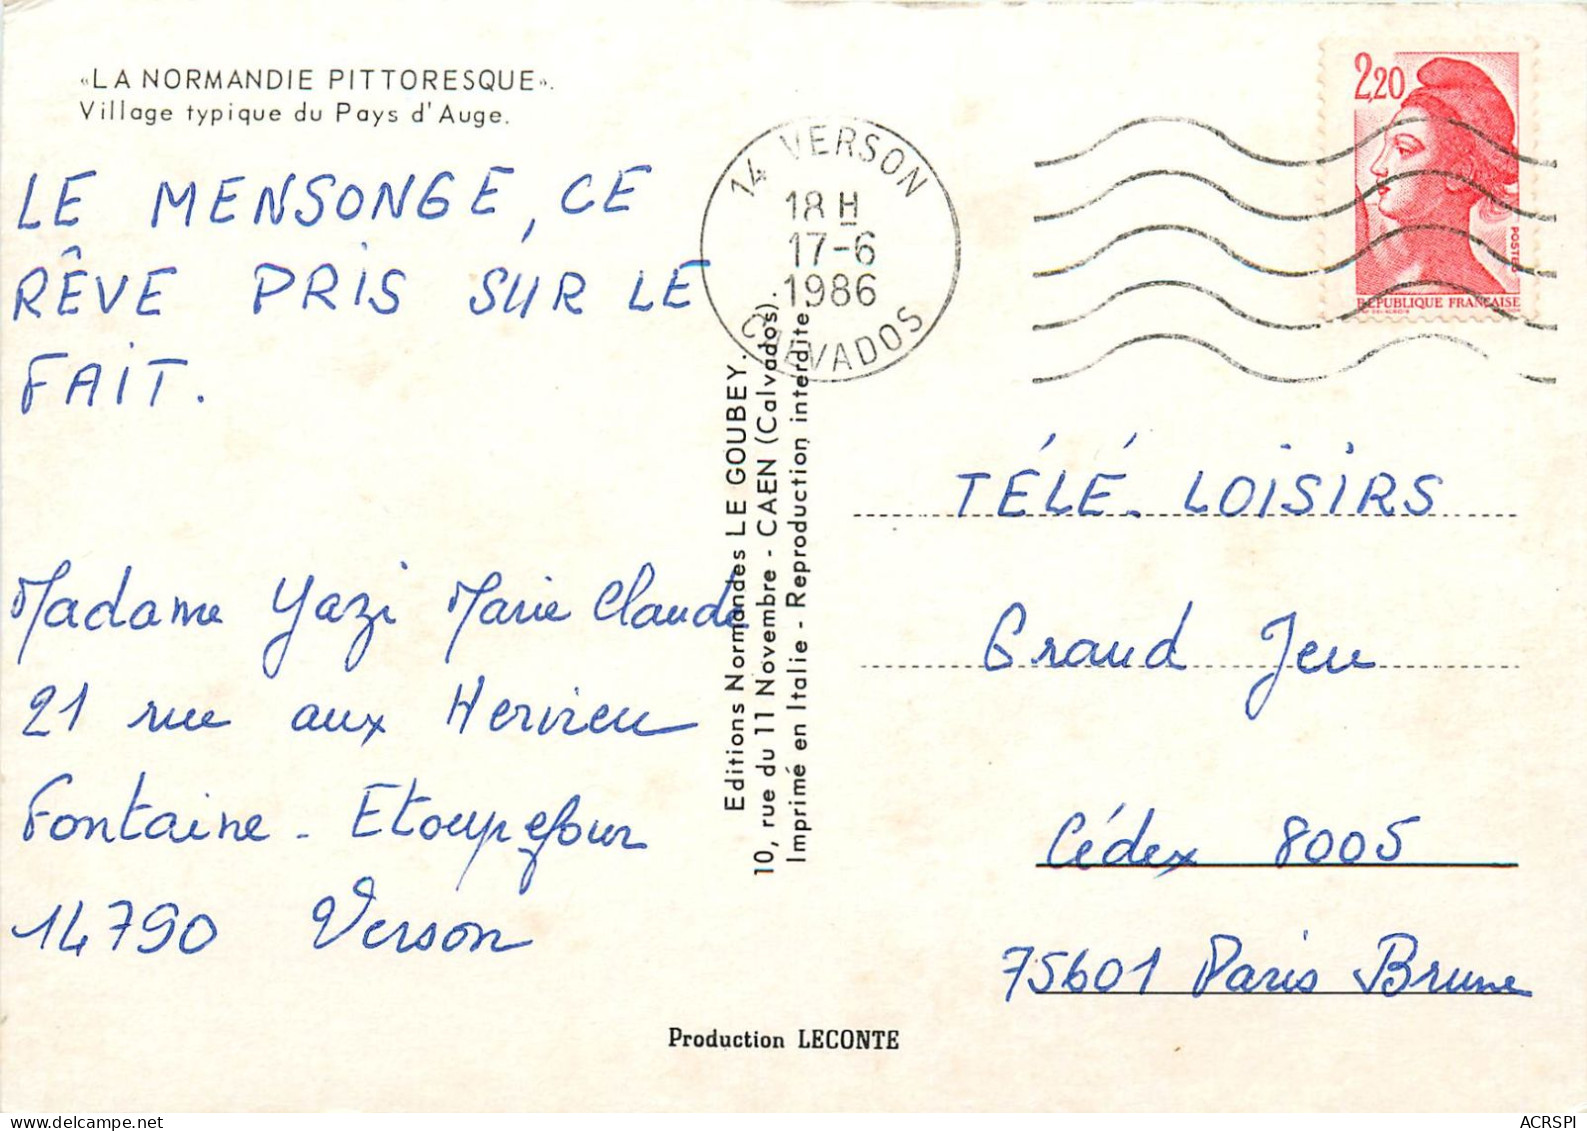 «LA NORMANDIE PITTORESQUE».
Village typique du Pays d'Auge.
LE MENSONGE, CE
RÊVE PRIS SUR LE
FAIT.
Madame Yazi Marie Claude
21 rue aux Hervieu
Fontaine - Etoupefour
14790 Verson
Editions Normandes LE GOUBEY.
10, rue du 11 Novembre - CAEN (Calvados).
Imprimé en Italie - Reproduction interdite.
14 VERSON
18 H
17-6
1986
CALVADOS
2,20
POSTES
RÉPUBLIQUE FRANÇAISE
TÉLÉ. LOISIRS
Grand Jeu
Cédex 8005
75601 Paris Brune
Production LECONTE
ACRSPI